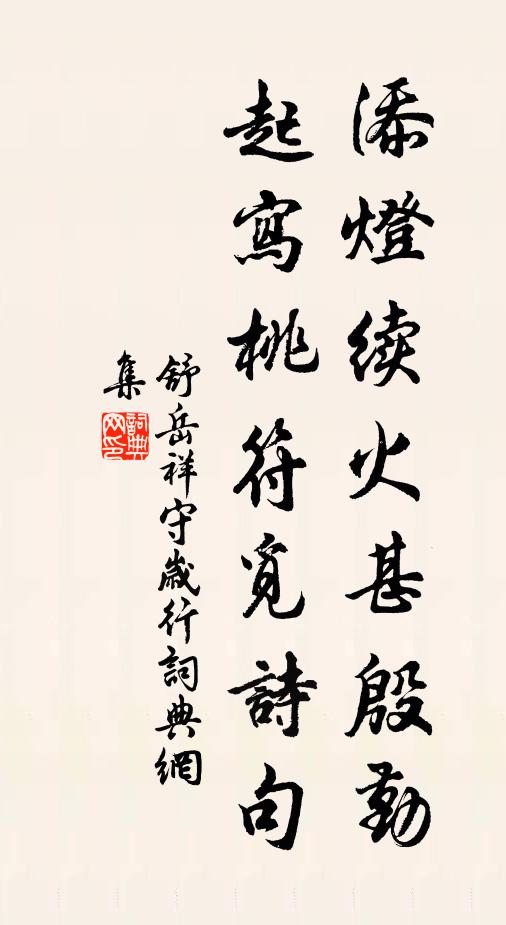 添燈续火甚殷勤
起寫桃符覓詩句
舒岳祥守歲行詞典網
集
詞典
网印